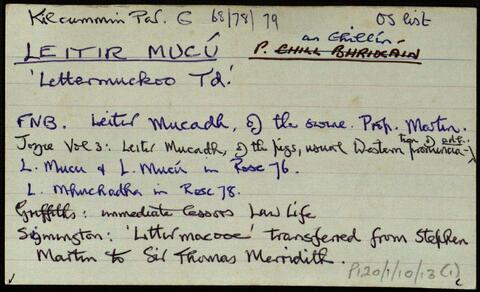 Kilcummin Par. G 68/78/79 OS list
LEITIR MUCÚ P. CHILL BHRIOCÁIN an Chillín
'Lettermuckoo Td.'
FNB. Leitir Mucadh, of the swine. Prop. Martin.
Joyce Vol 3: Leitir Mucadh, of the pigs, usual Western pronuncia-tion of
L. Mucu & L. Mucú in Rosc 76.
L. Mhuchadha in Rosc 78.
Griffiths: immediate lessors Law Life
Symington: 'Lettermacooe' transferred from Stephen
Martin to Sir Thomas Merridith.
P120/1/10/13(1)